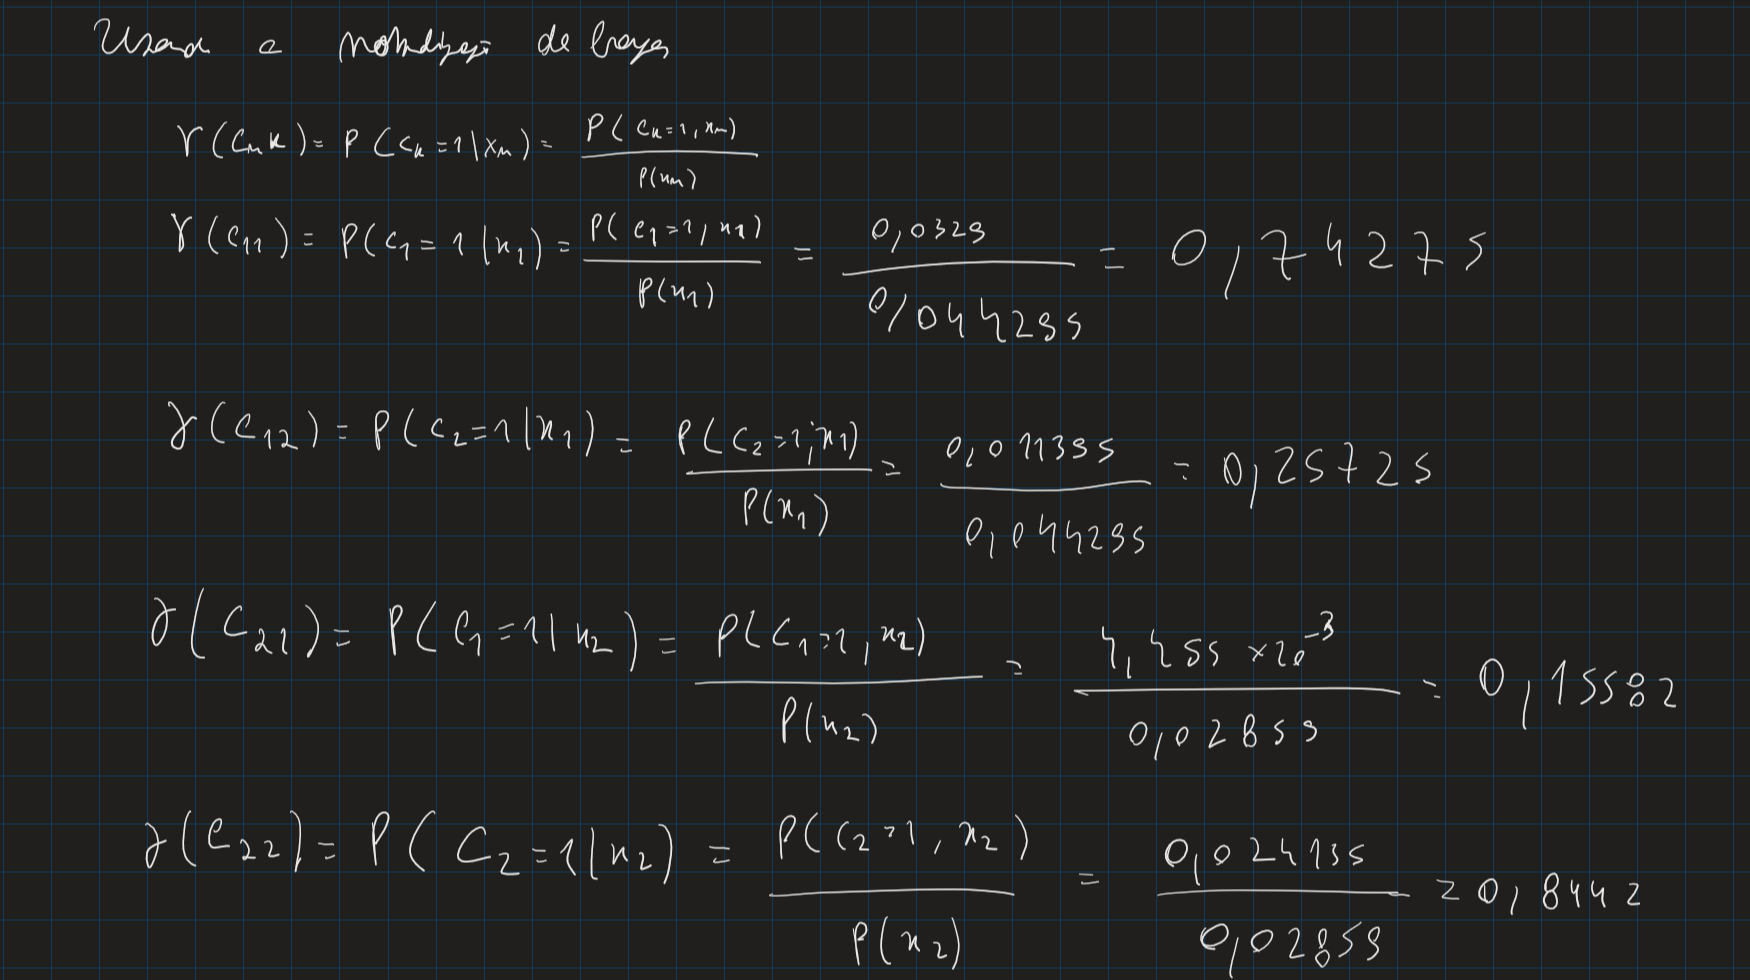 Usando a normalização de bayes
γ(C_nk) = P(C_k=1|x_n) = P(C_k=1, x_n) / P(x_n)
γ(C_11) = P(C_1=1|x_1) = P(C_1=1, x_1) / P(x_1) = 0,0329 / 0,044295 = 0,74275
γ(C_12) = P(C_2=1|x_1) = P(C_2=1, x_1) / P(x_1) = 0,011395 / 0,044295 = 0,25725
γ(C_21) = P(C_1=1|x_2) = P(C_1=1, x_2) / P(x_2) = 4,455 ×10^-3 / 0,02859 = 0,15582
γ(C_22) = P(C_2=1|x_2) = P(C_2=1, x_2) / P(x_2) = 0,024135 / 0,02859 = 0,8442